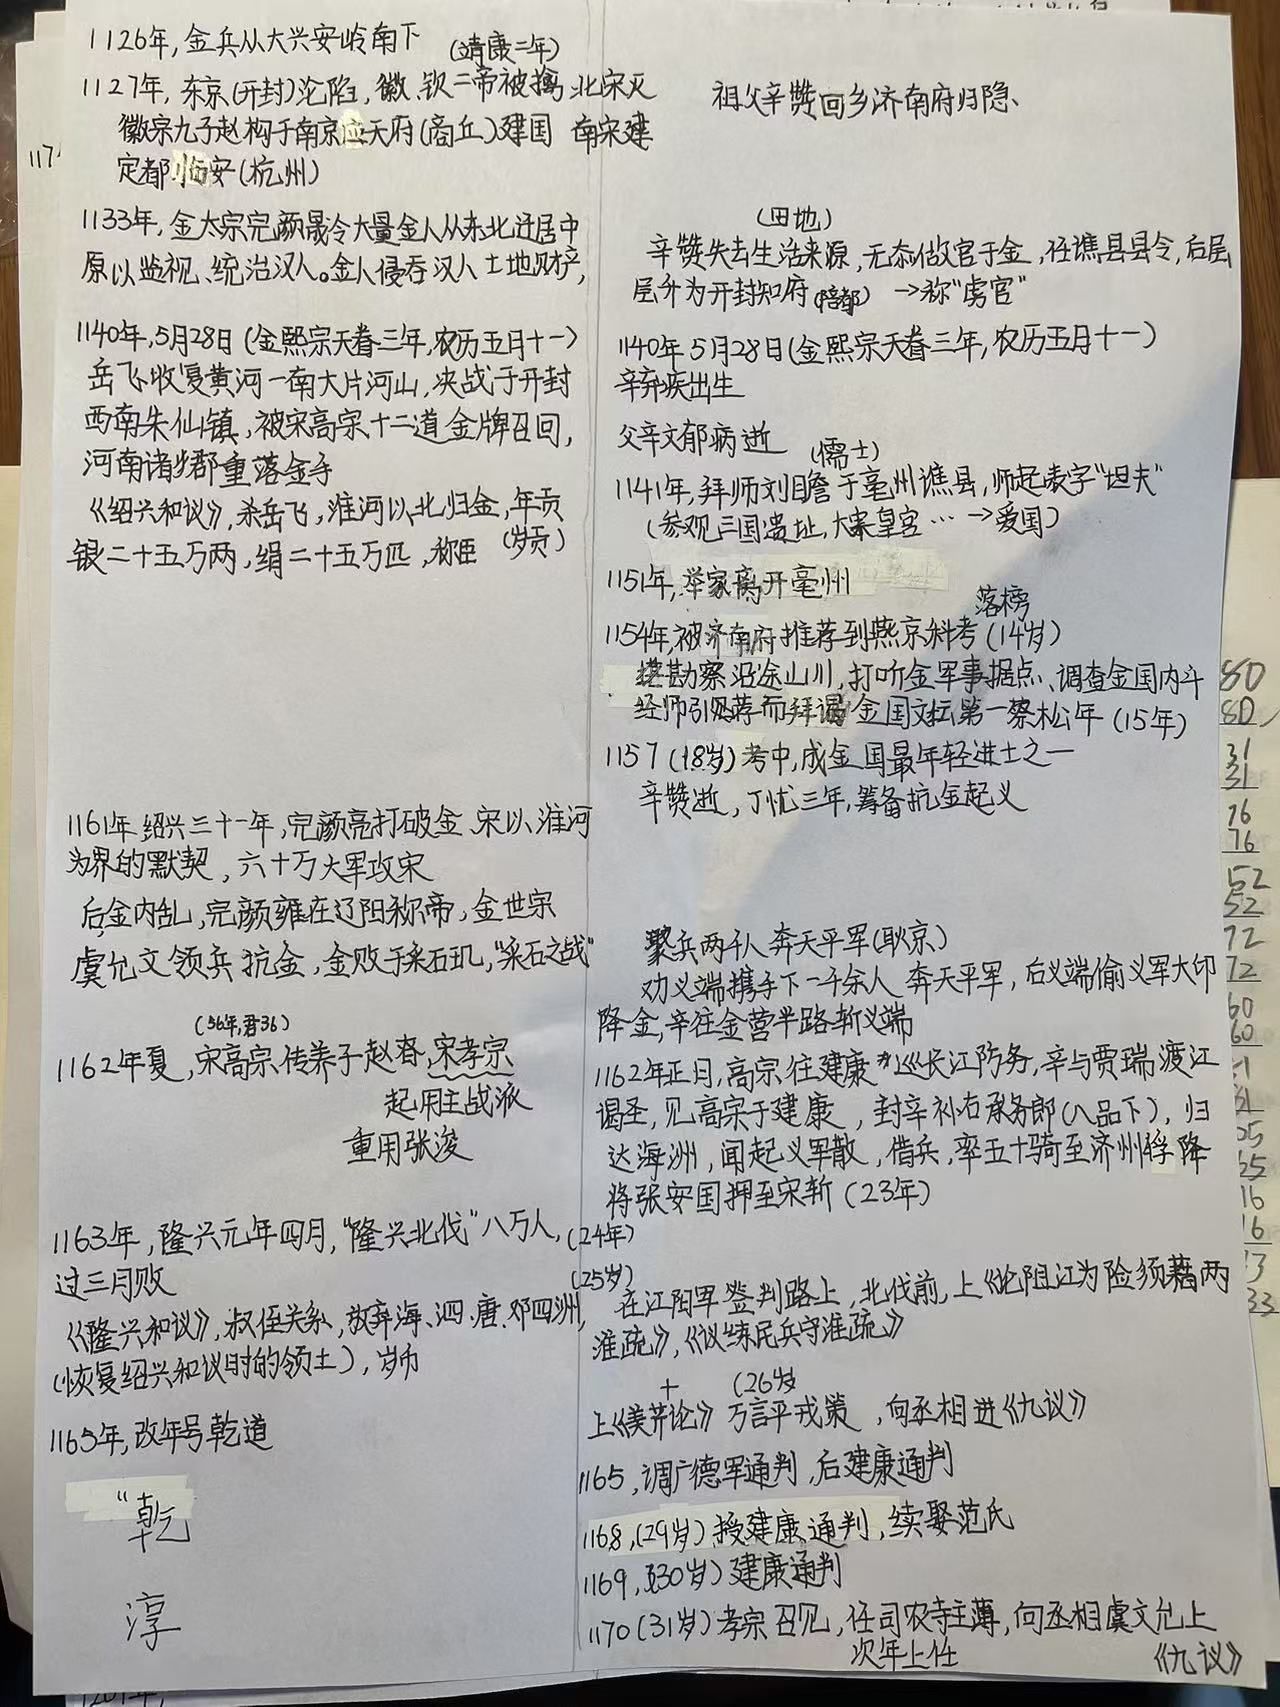 1126年，金兵从大兴安岭南下
（靖康二年）
1127年，东京(开封)沦陷，徽、钦二帝被擒，北宋灭
徽宗九子赵构于南京应天府(商丘)建国 南宋建
定都临安(杭州)
1133年，金太宗完颜晟令大量金人从东北迁居中
原以监视、统治汉人。金人侵吞汉人土地财产，
1140年，5月28日（金熙宗天眷三年，农历五月十一）
岳飞收复黄河一南大片河山，决战于开封
西南朱仙镇，被宋高宗十二道金牌召回，
河南诸郡重落金手
《绍兴和议》，杀岳飞，淮河以北归金，年贡
银二十五万两，绢二十五万匹，称臣（岁贡）
1161年 绍兴三十一年，完颜亮打破金、宋以淮河
为界的默契，六十万大军攻宋
后金内乱，完颜雍在辽阳称帝，金世宗
虞允文领兵抗金，金败于采石矶，“采石之战”
（56年，君36）
1162年夏，宋高宗传养子赵眘，宋孝宗
起用主战派
重用张浚
1163年，隆兴元年四月，“隆兴北伐”八万人，
过三月败
《隆兴和议》，叔侄关系，放弃海、泗、唐、邓四洲，
（恢复绍兴和议时的领土），岁币
1165年，改年号乾道
“乾
淳
祖父辛赞回乡济南府归隐、
（田地）
辛赞失去生活来源，无奈做官于金，任谯县县令，后层
层升为开封知府（陪都）→称“虏官”
1140年5月28日(金熙宗天眷三年，农历五月十一）
辛弃疾出生
父辛文郁病逝
（儒士）
1141年，拜师刘瞻于亳州谯县，师起表字“坦夫”
（参观三国遗址，大宋皇宫…→爱国）
1151年，举家离开亳州
落榜
1154年，被济南府推荐到燕京科考（14岁）
勘察沿途山川，打听金军事据点、调查金国内斗
经师引荐而拜谒金国文坛第一蔡松年（15年）
1157（18岁）考中，成金国最年轻进士之一
辛赞逝，丁忧三年，筹备抗金起义
聚兵两千人奔天平军(耿京）
劝义端携手下一千余人奔天平军，后义端偷义军大印
降金，辛往金营半路斩义端
1162年正月，高宗往建康巡长江防务，辛与贾瑞渡江
谒圣，见高宗于建康，封辛补右承务郎（八品下），归
达海洲，闻起义军散，借兵，率五十骑至济州俘降
将张安国押至宋斩（23年）
（24年）
（25岁）
在江阴军签判路上，北伐前，上《论阻江为险须藉两
淮疏》，《议练民兵守淮疏》
＋ （26岁
上《美芹论》万言平戎策，向丞相进《九议》
1165，调广德军通判，后建康通判
1168，（29岁）授建康通判，续娶范氏
1169，（30岁）建康通判
1170（31岁）孝宗召见，任司农寺主薄，向丞相虞文允上
次年上任 《九议》
117
80
80
31
31
76
76
52
52
72
72
60
60
31
25
16
16
33